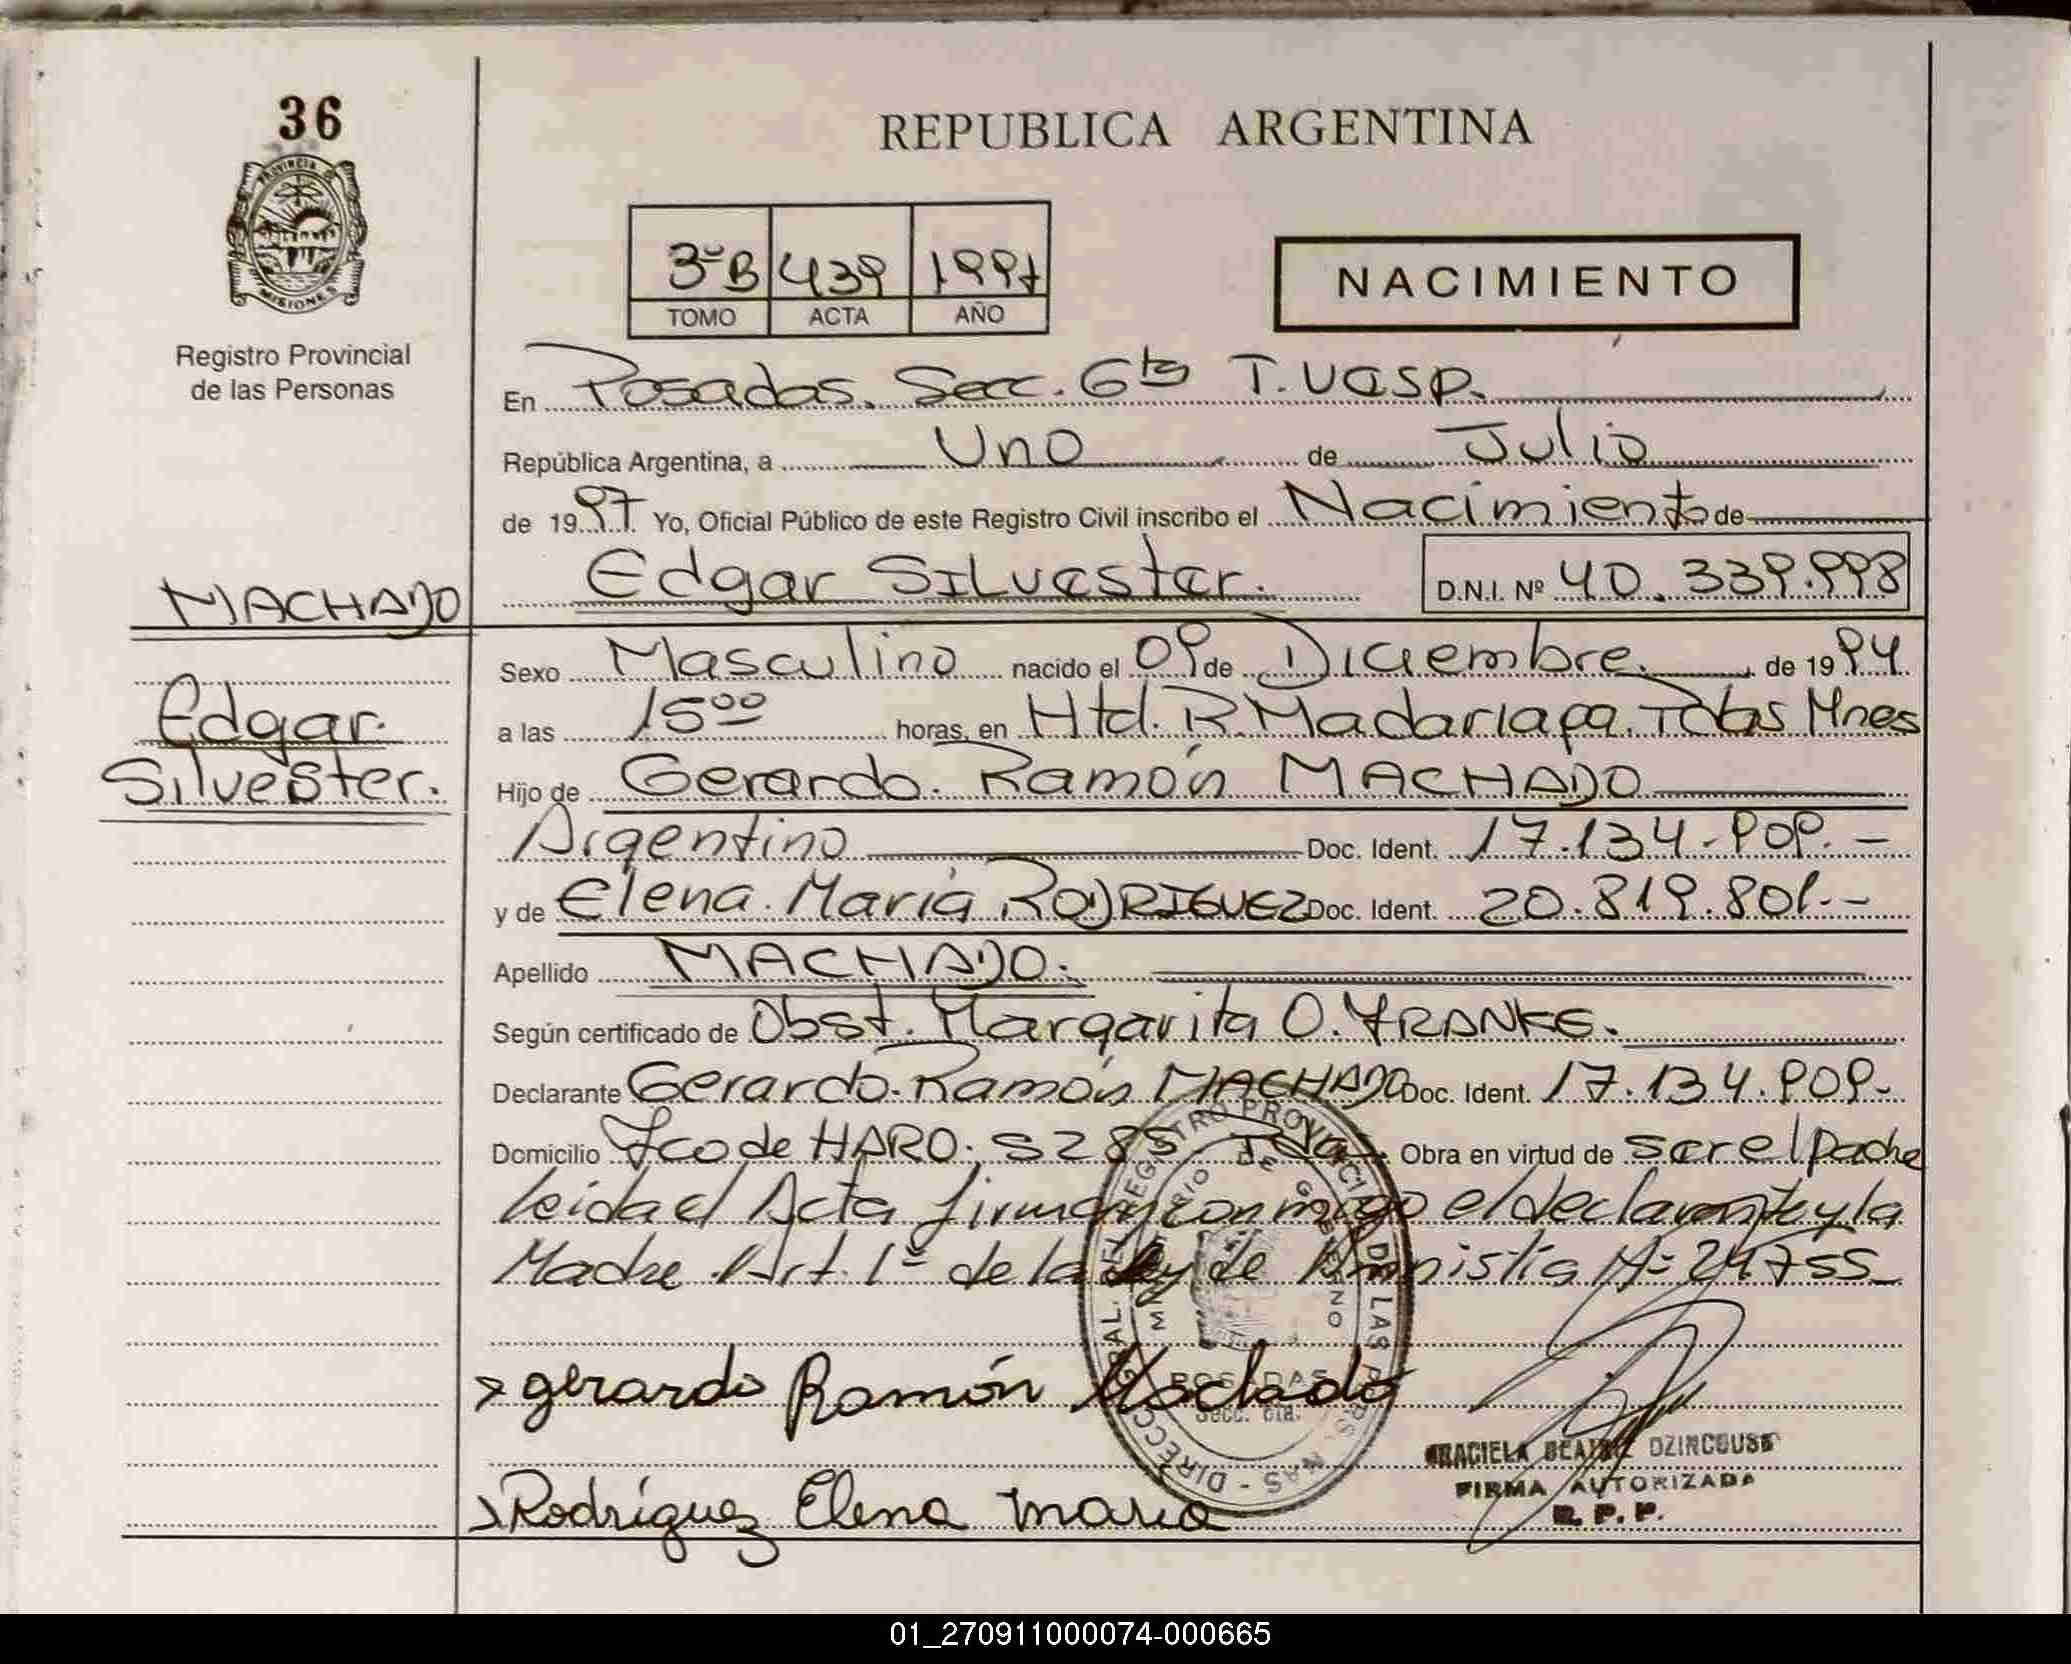 36
PROVINCIA DE MISIONES
Registro Provincial
de las Personas
REPUBLICA ARGENTINA
3º B 439 1997
TOMO ACTA AÑO
NACIMIENTO
En Posadas. Secc. 6ta T. Vesp.
República Argentina, a Uno de Julio
de 1997. Yo, Oficial Público de este Registro Civil inscribo el Nacimiento de
Edgar SILvester. D.N.I. Nº 40.339.998
MACHADO
Edgar
Silvester.
Sexo Masculino nacido el 09 de Diciembre. de 1994
a las 15⁰⁰ horas, en Htal. R. Madariaga. Pdas Mnes
Hijo de Gerardo Ramón MACHADO
Argentino Doc. Ident. 17.134.909.-
y de Elena María RODRIGUEZ Doc. Ident. 20.819.801.-
Apellido MACHADO.
Según certificado de Obst. Margarita O. FRANKE.
Declarante Gerardo Ramón MACHADO Doc. Ident. 17.134.909-
Domicilio Fco de HARO. 5285 Pdas. Obra en virtud de ser el padre
leida el Acta firman conmigo el declarante y la
Madre Art. 1º de la Ley de Amnistía Nº 24755
gerardo Ramón Machado
Rodríguez Elena maria
DIRECC. GRAL. DEL REGISTRO PROVINCIAL DE LAS PERSONAS
MINISTERIO DE GOBIERNO
POSADAS
Secc. 6ta.
GRACIELA BEATRIZ DZINCOUSE
FIRMA AUTORIZADA
R. P. P.
01_270911000074-000665